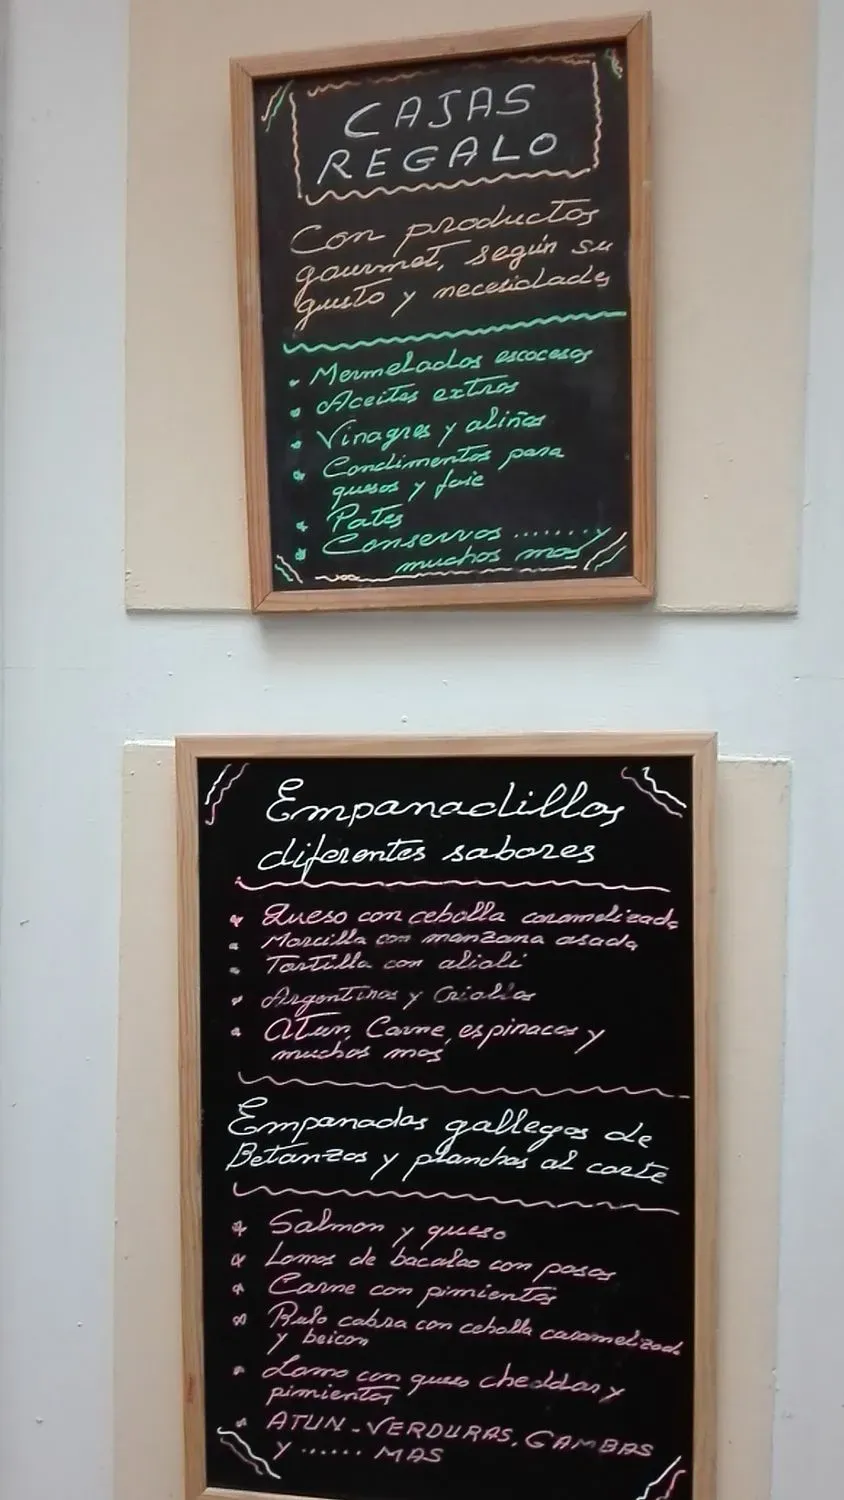 CAJAS
REGALO
Con productos
gourmet, según su
gusto y necesidades
Mermeladas escocesas
Aceites extras
Vinagres y aliños
Condimentos para
quesos y foie
Pates
Conservas ........ y
muchos mas
Empanadillas
diferentes sabores
Queso con cebolla caramelizada
Morcilla con manzana asada
Tortilla con alioli
Argentinas y Criollas
Atun, Carne, espinacas y
muchos mas
Empanadas gallegas de
Betanzos y planchas al corte
Salmon y queso
Lomos de bacalao con pasas
Carne con pimientos
Rulo cabra con cebolla caramelizada
y beicon
Lomo con queso cheddar y
pimientos
ATUN - VERDURAS, GAMBAS
y ...... MAS